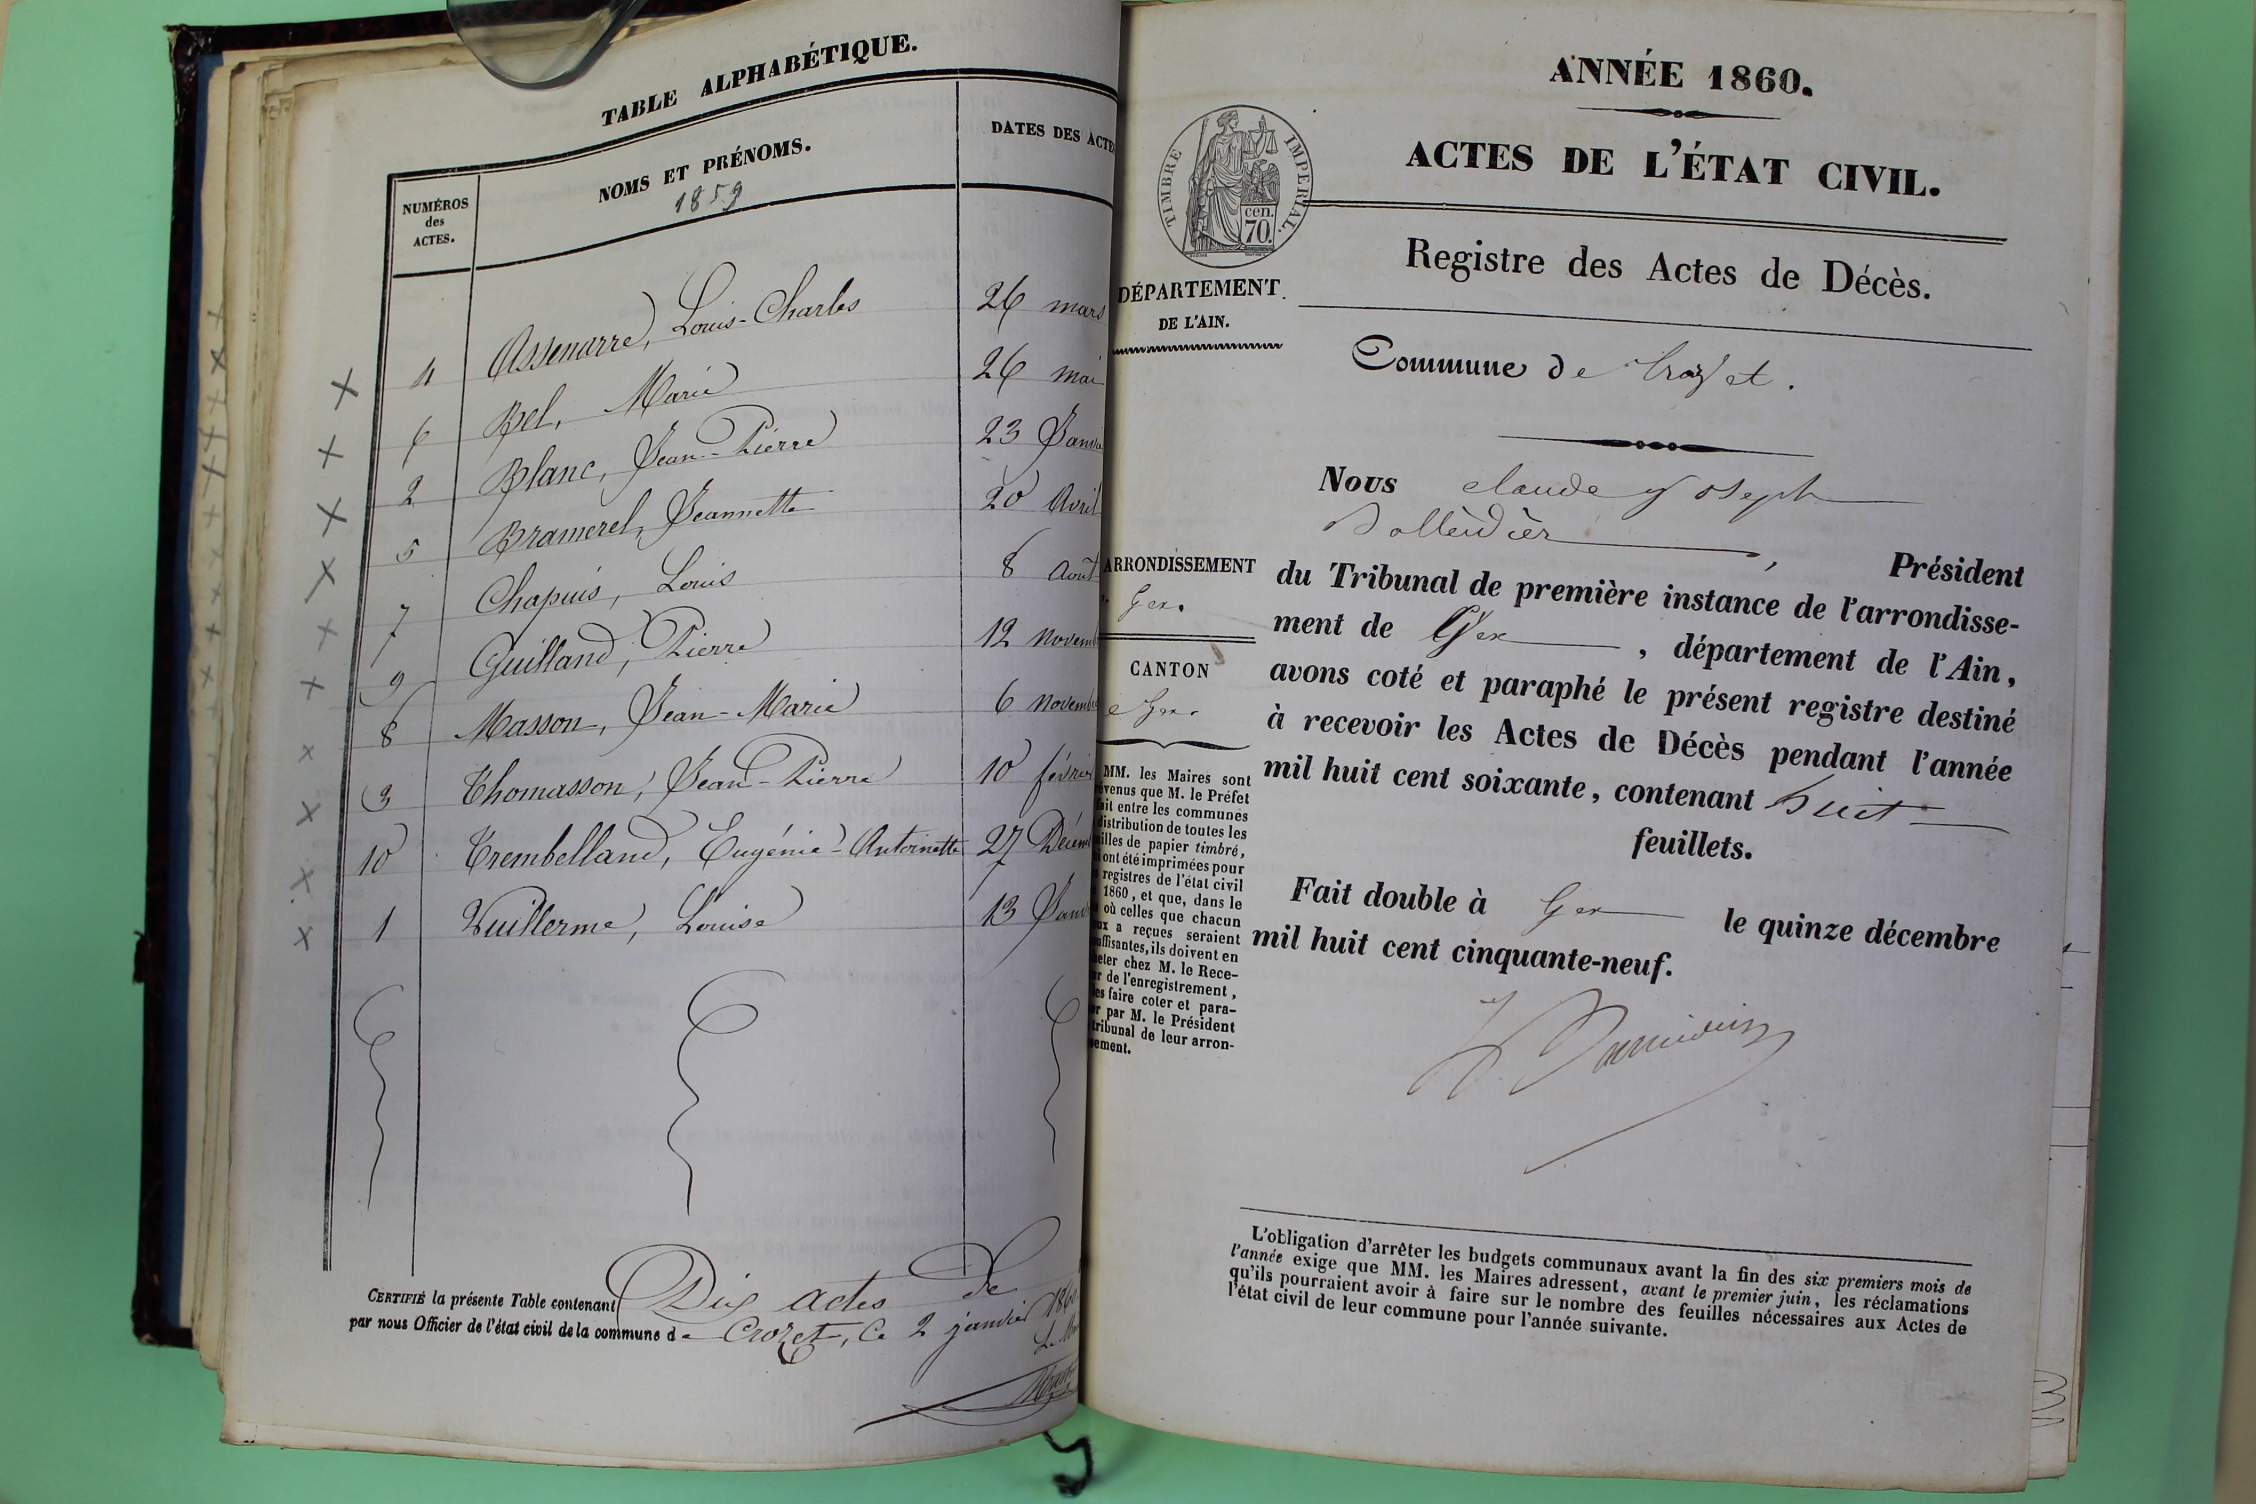 TABLE ALPHABÉTIQUE.
NUMÉROS
des
ACTES.
NOMS ET PRÉNOMS.
1859
DATES DES ACTE
4 Assenarre, Louis-Charles 26 mars
6 Bel, Marie 26 mai
2 Blanc, Jean-Pierre 23 Janvie
5 Bramerel, Jeannette 20 Avril
7 Chapuis, Louis 8 Août
9 Guilland, Pierre 12 Novemb
8 Masson, Jean-Marie 6 Novemb
3 Thomasson, Jean-Pierre 10 févrie
10 Trembelland, Eugénie-Antoinette 27 Décem
1 Vuillerme, Louise 13 Janv
CERTIFIÉ la présente Table contenant Dix actes de
par nous Officier de l'état civil de la commune de Crozet, Ce 2 janvier 1860
ANNÉE 1860.
ACTES DE L'ÉTAT CIVIL.
TIMBRE IMPERIAL.
cen.
70.
DÉPARTEMENT
DE L'AIN.
Registre des Actes de Décès.
Commune de Crozet.
Nous claude Joseph
, Président
du Tribunal de première instance de l'arrondisse-
ment de Gex , département de l'Ain,
avons coté et paraphé le présent registre destiné
à recevoir les Actes de Décès pendant l'année
mil huit cent soixante, contenant huit
feuillets.
Fait double à Gex le quinze décembre
mil huit cent cinquante-neuf.
ARRONDISSEMENT
Gex.
CANTON
e Gex.
MM. les Maires sont
évenus que M. le Préfet
ait entre les communes
distribution de toutes les
illes de papier timbré,
i ont été imprimées pour
s registres de l'état civil
1860, et que, dans le
où celles que chacun
ux a reçues seraient
uffisantes, ils doivent en
heter chez M. le Rece-
ur de l'enregistrement,
les faire coter et para-
er par M. le Président
tribunal de leur arron-
sement.
L'obligation d'arrêter les budgets communaux avant la fin des six premiers mois de
l'année exige que MM. les Maires adressent, avant le premier juin, les réclamations
qu'ils pourraient avoir à faire sur le nombre des feuilles nécessaires aux Actes de
l'état civil de leur commune pour l'année suivante.